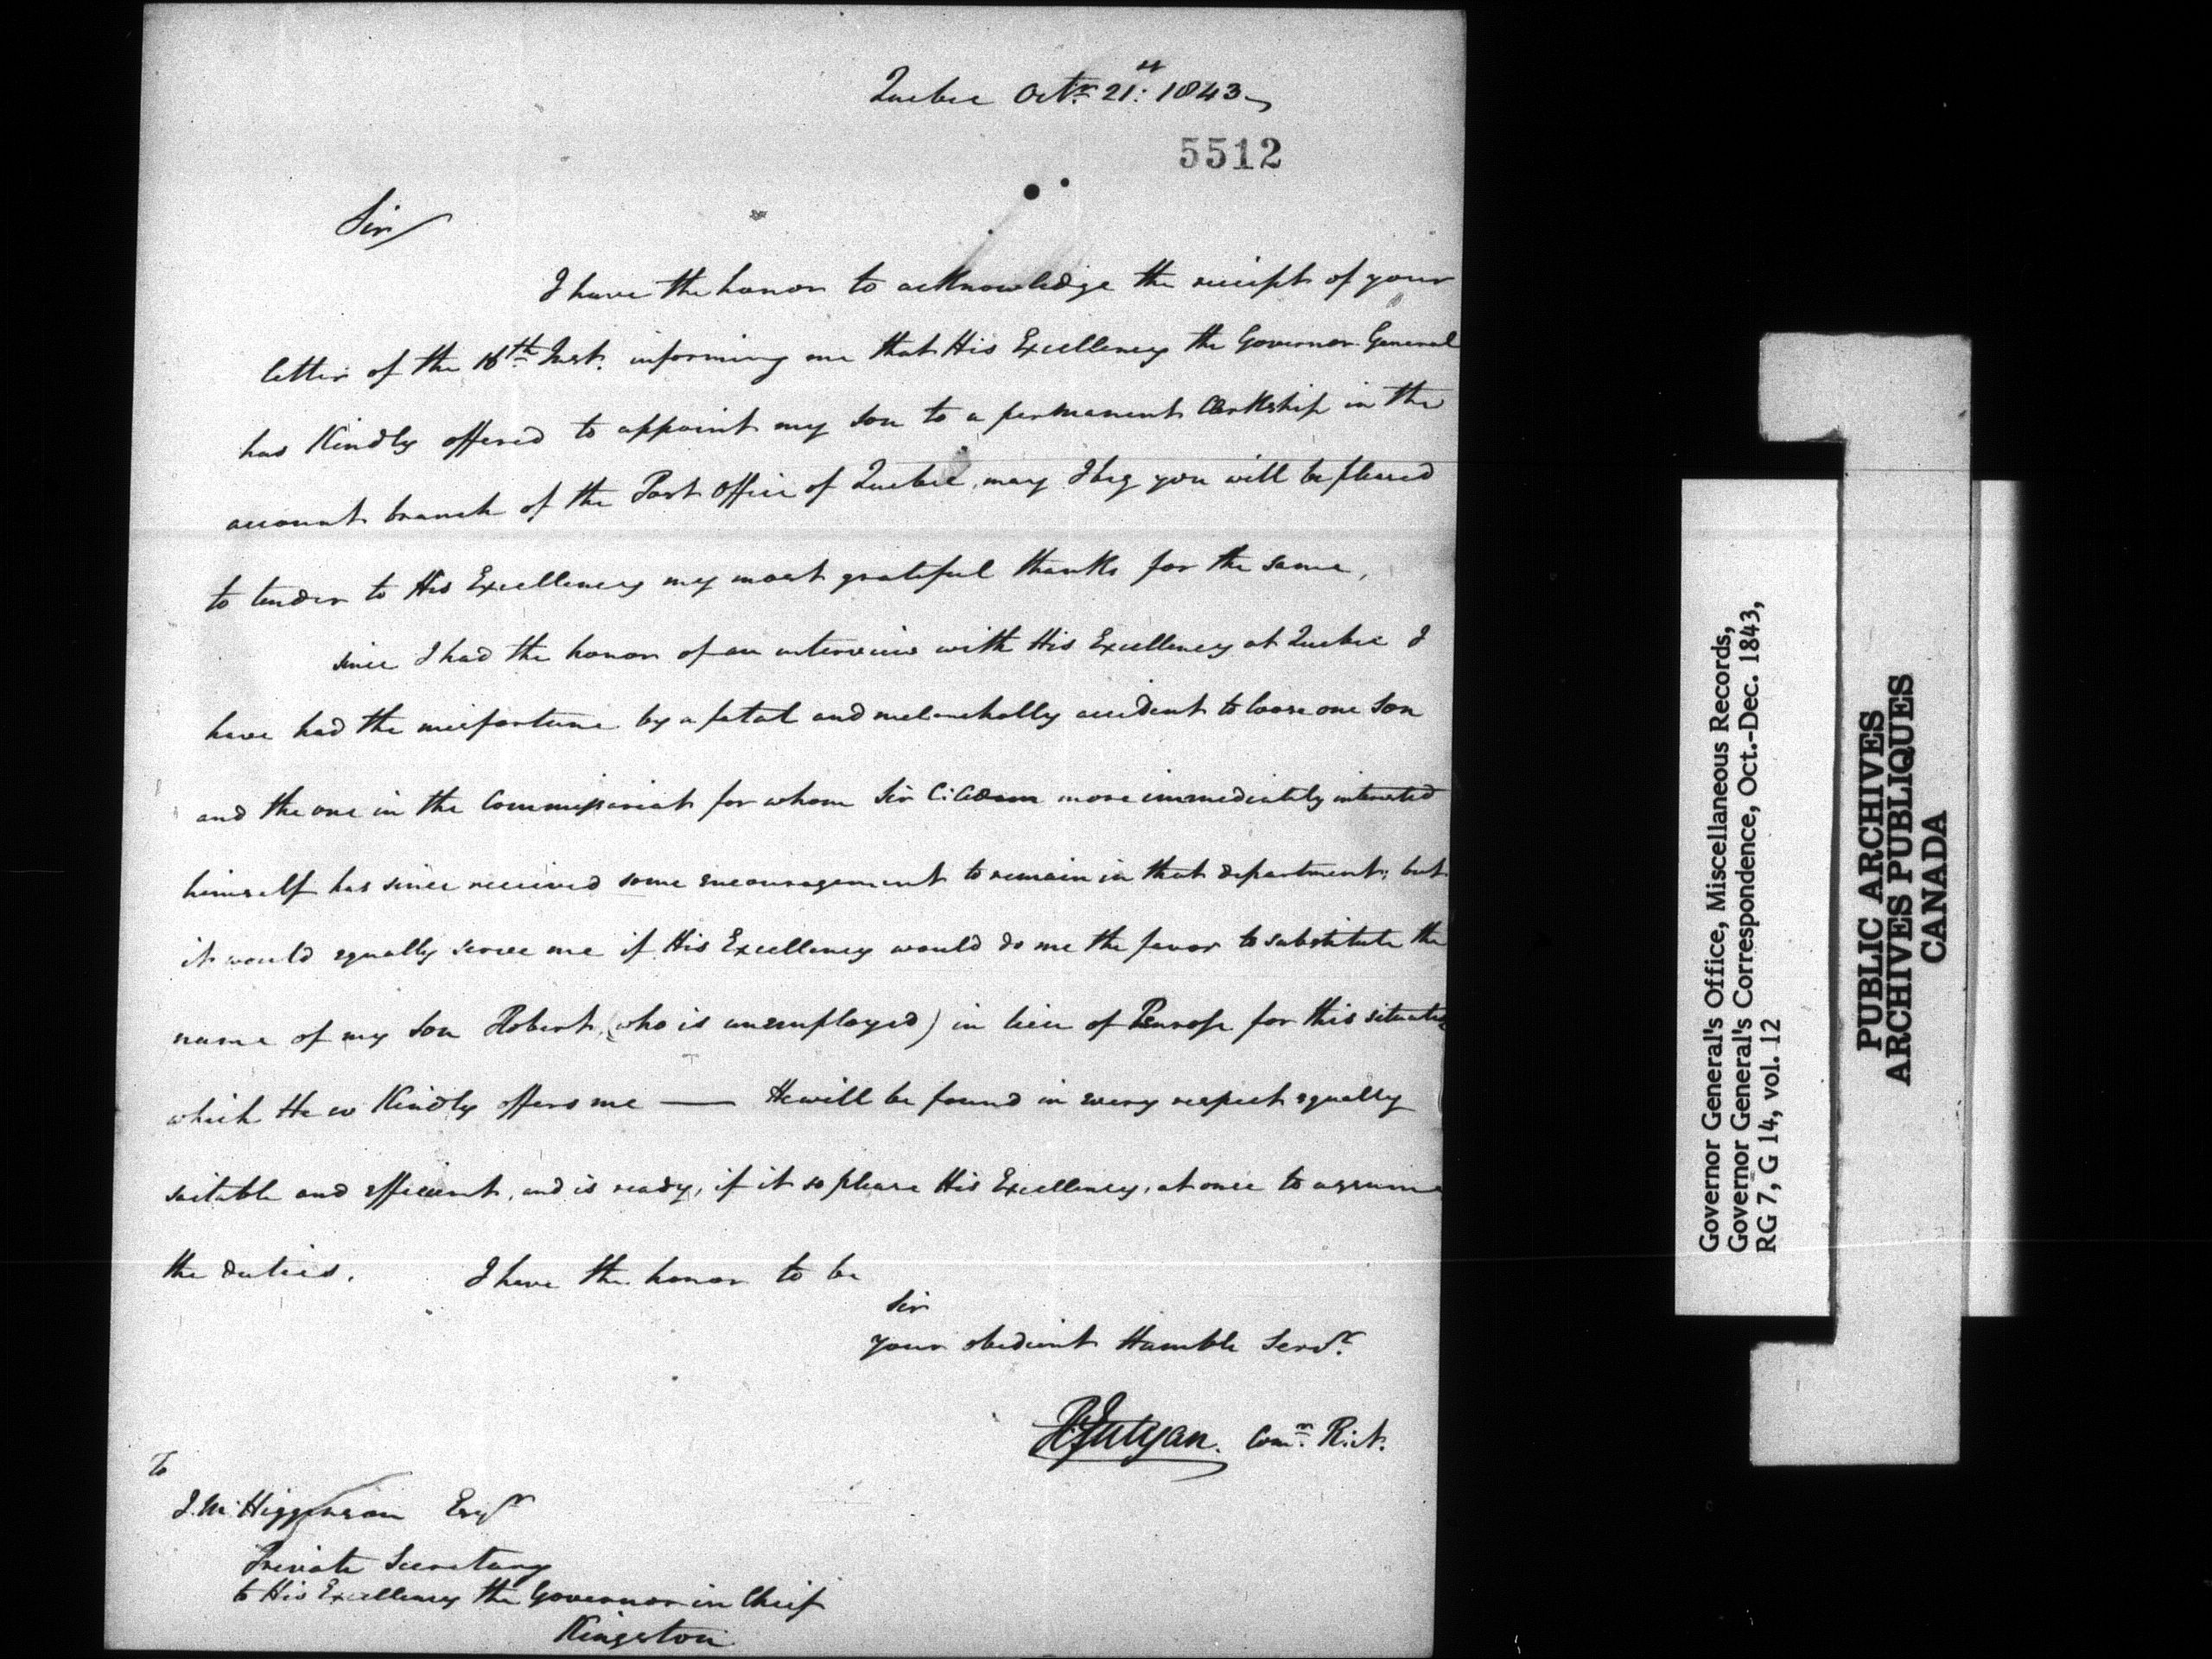 Quebec Octr. 21st: 1843
5512
Sir
I have the honor to acknowledge the receipt of your
letter of the 16th Inst. informing me that His Excellency the Governor General
has Kindly offered to appoint my son to a permanent Clerkship in the
account branch of the Post Office of Quebec, may I beg you will be pleased
to tender to His Excellency my most grateful thanks for the same,
since I had the honor of an interview with His Excellency at Quebec I
have had the misfortune by a fatal and melancholly accident to loose one son
and the one in the Commissariat for whom Sir C: more immediately interested
himself has since received some encouragement to remain in that department; but
it would equally serve me if His Excellency would do me the favor to substitute the
name of my son Robert, (who is unemployed) in lieu of for this situation
which He so Kindly offers me — He will be found in every respect equally
suitable and efficient, and is ready, if it so please His Excellency, at once to assume
the duties. I have the honor to be
Sir
your obedient Humble Servt.
Comr. R.N.
To
J. M. Higginson Esqr
Private Secretary
to His Excellency the Governor in Chief
Kingston
Governor General's Office, Miscellaneous Records,
Governor General's Correspondence, Oct.-Dec. 1843,
RG 7, G 14, vol. 12
PUBLIC ARCHIVES
ARCHIVES PUBLIQUES
CANADA